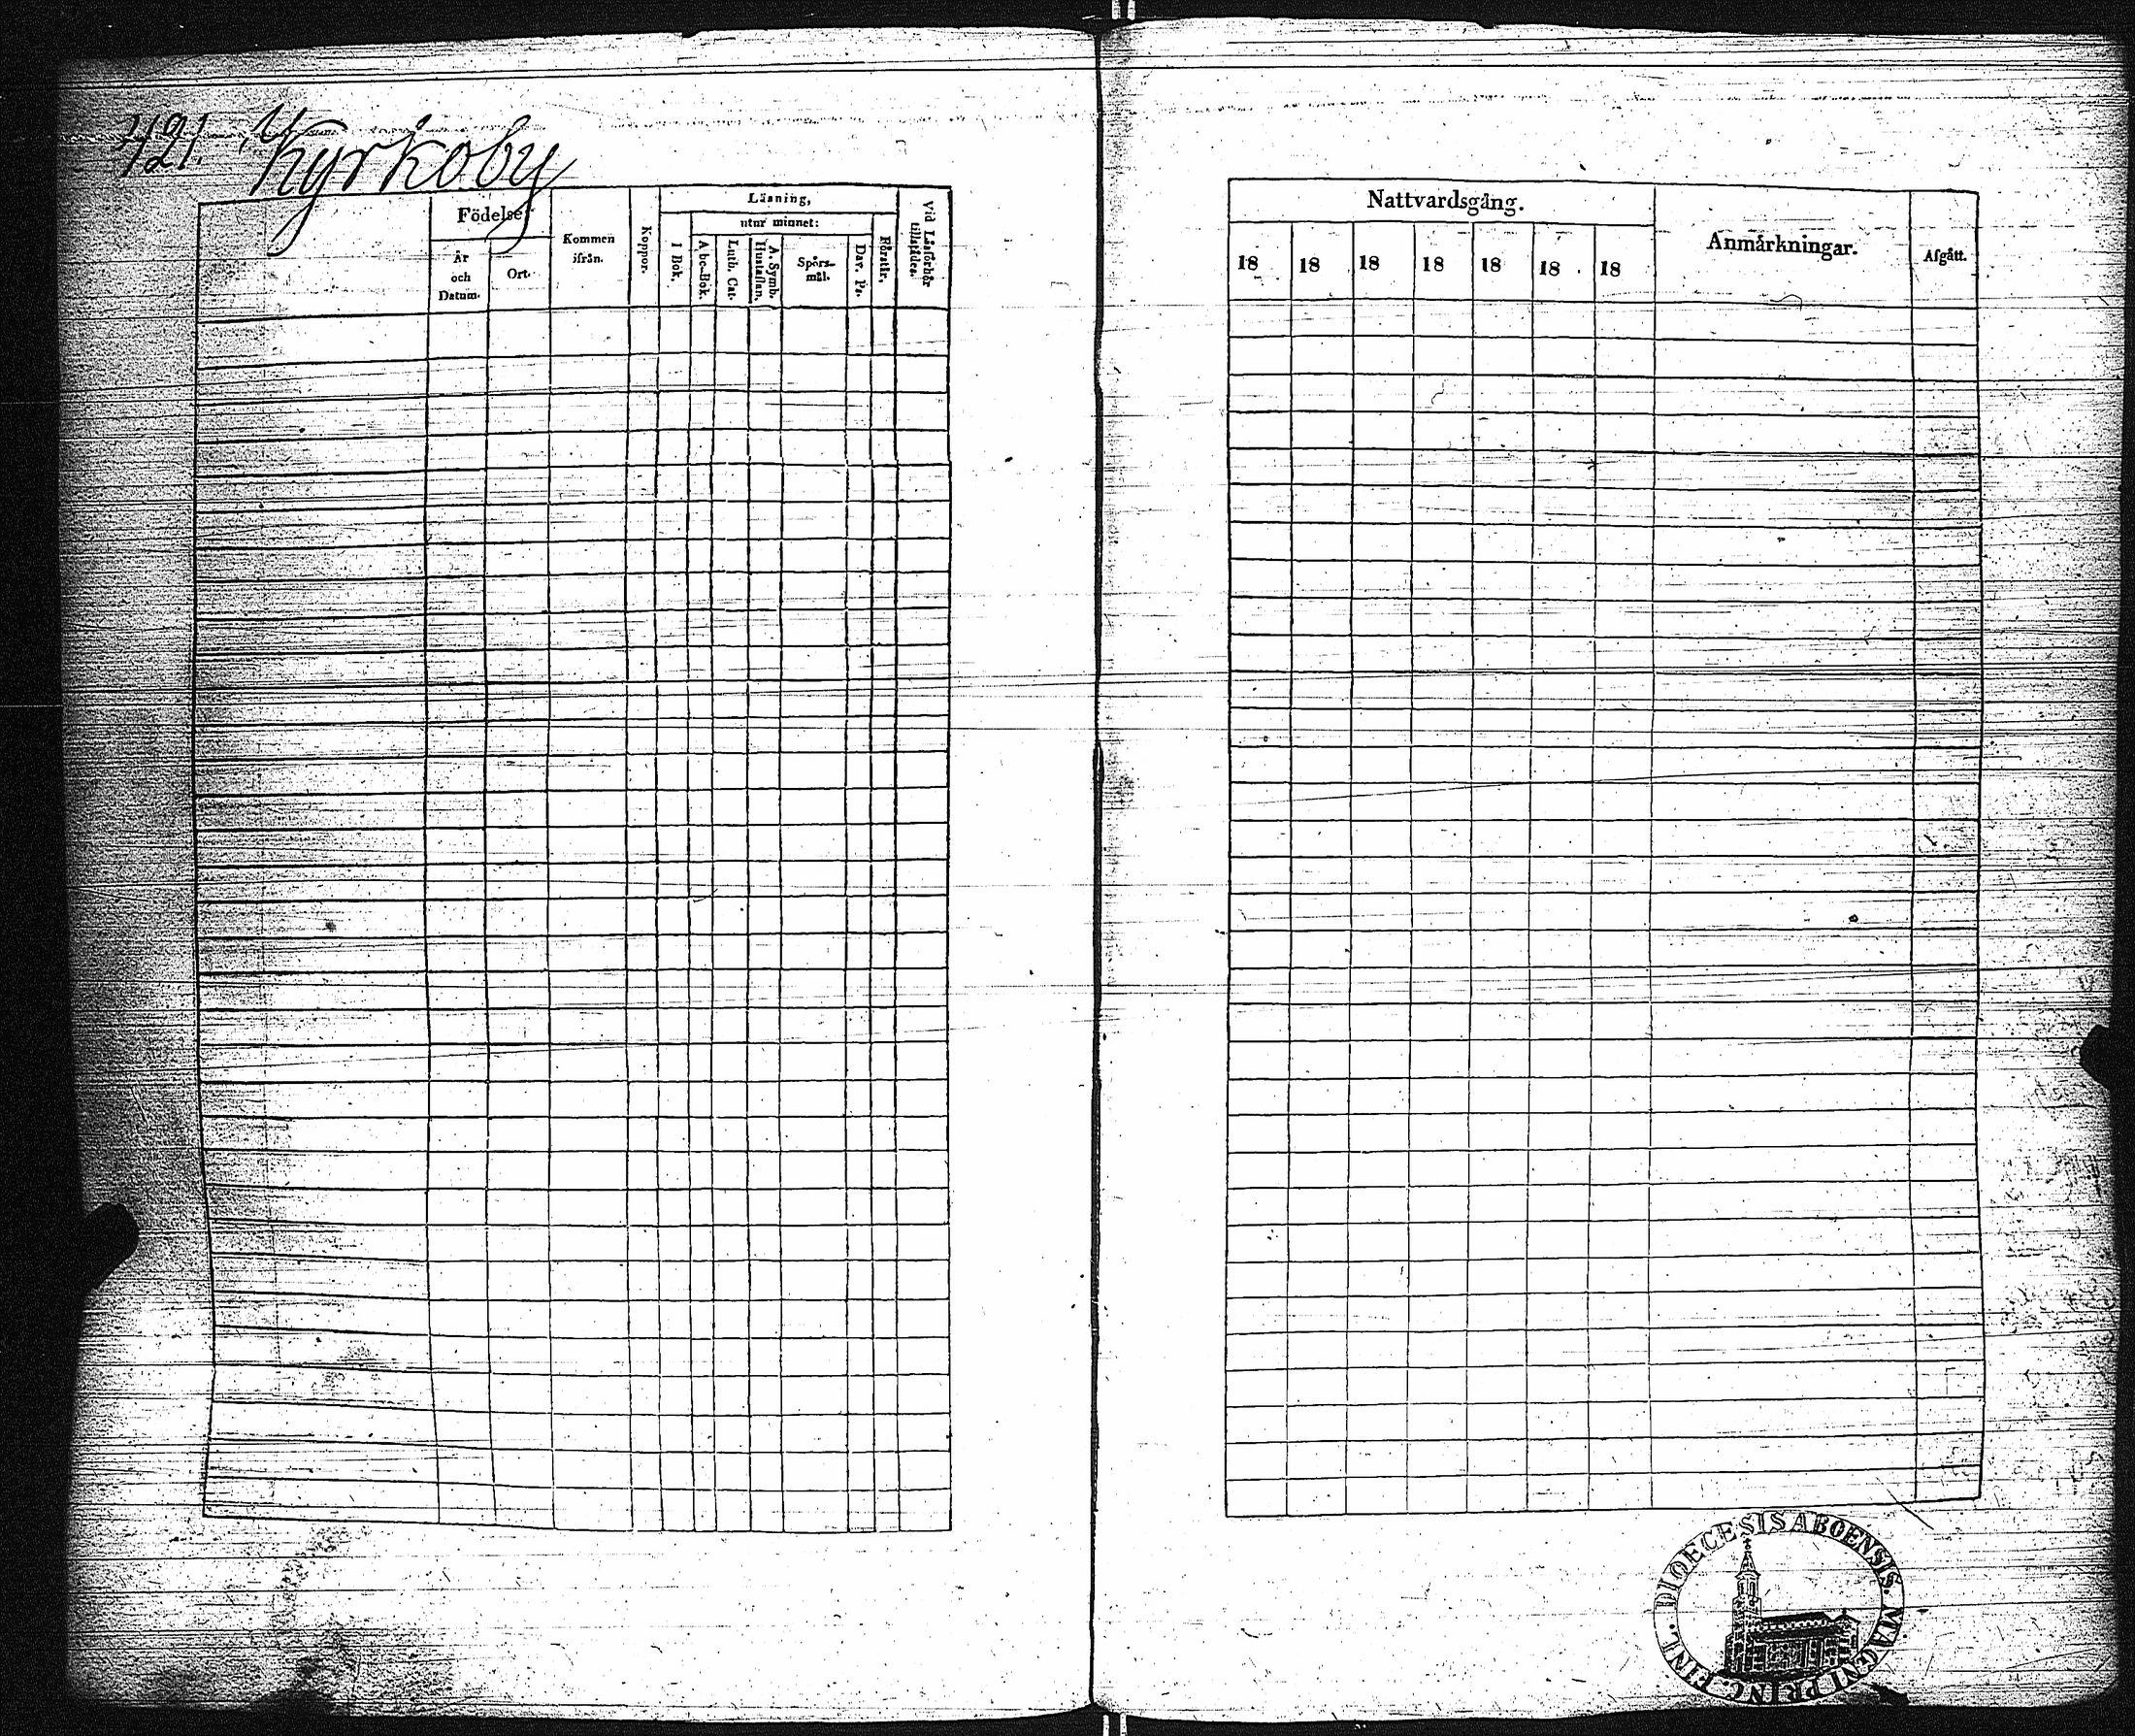 421. Kyrkoby
Födelse-
År
och
Datum.
Ort.
Kommen
ifrån.
Koppor.
Läsning,
utur minnet:
I Bok.
Abc-Bok.
Luth. Cat.
A. Symb.
Hustaflan.
Spörs-
mål.
Dav. Ps.
Förstår.
Vid Läsförhör
tillstädes.
Nattvardsgång.
18 18 18 18 18 18 18
Anmärkningar.
Afgått.
DIOECESIS ABOENSIS. MAGNI PRINC. FINL.